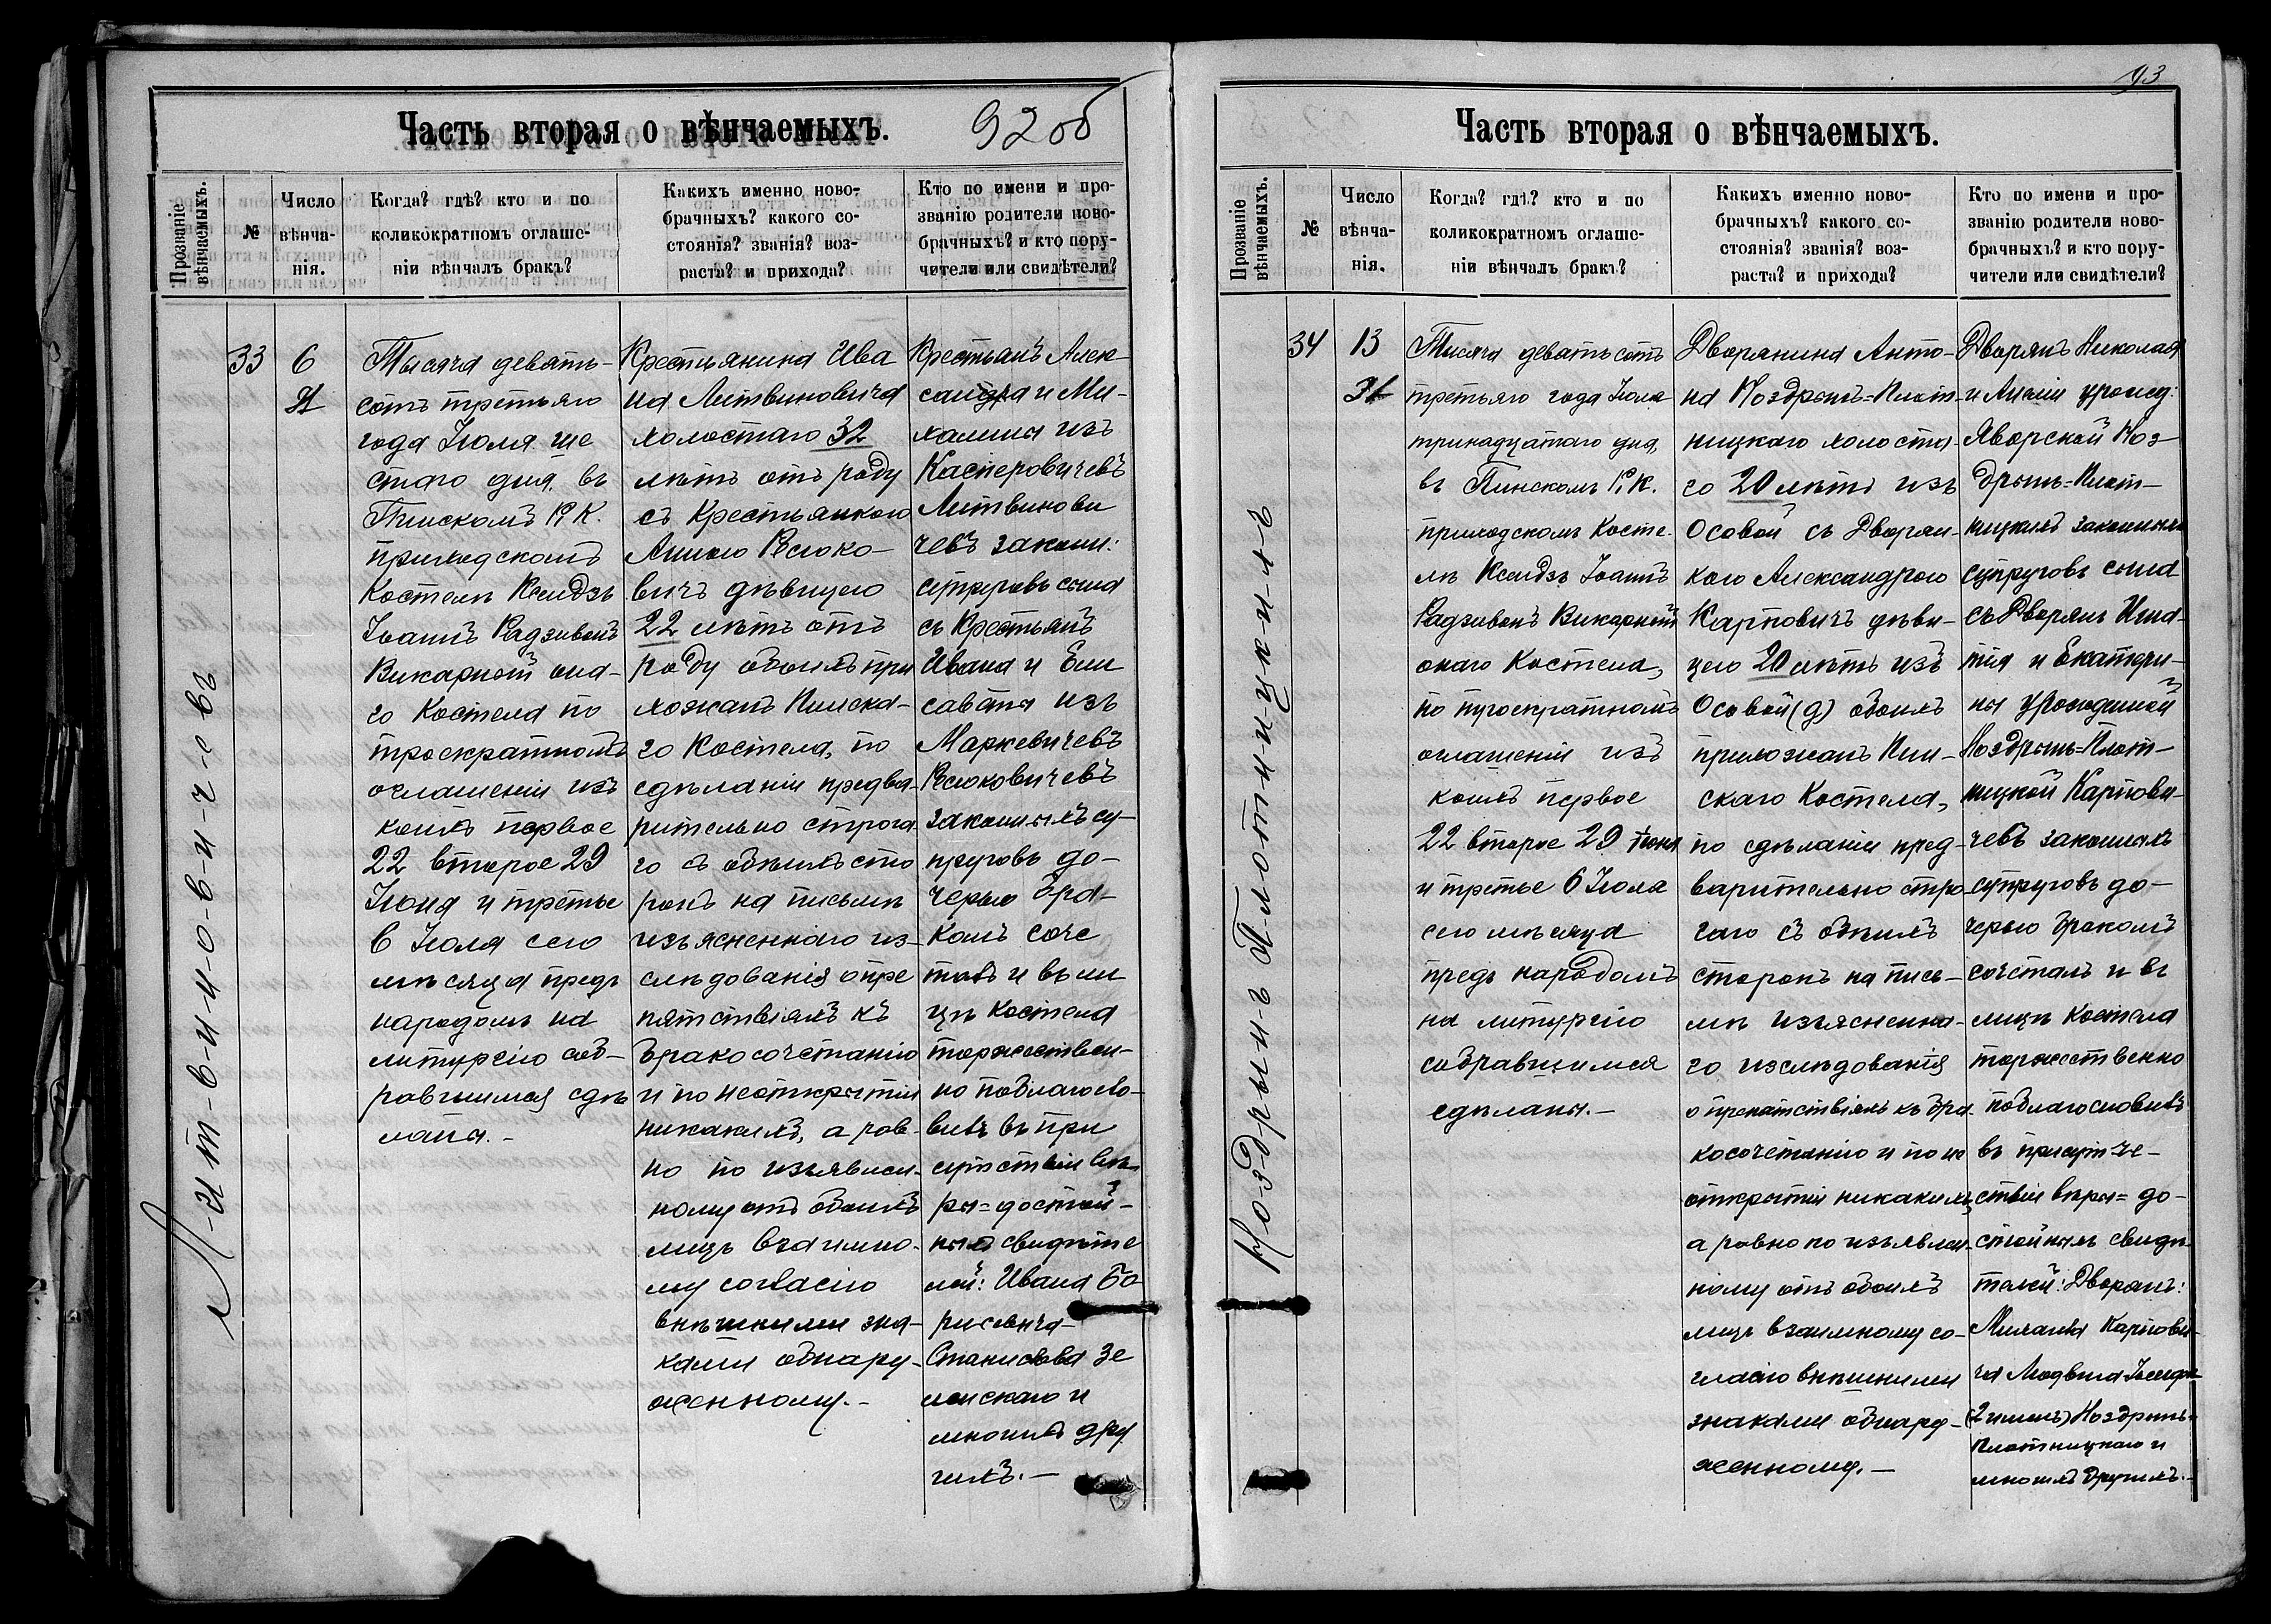 92 об
Часть вторая о вѣнчаемыхъ.
Прозваніе вѣнчаемыхъ.
№
Число
вѣнча-
нія.
Когда? гдѣ? кто и по
коликократномъ оглаше-
ніи вѣнчалъ бракъ?
Какихъ именно ново-
брачныхъ? какого со-
стоянія? званія? воз-
раста? и прихода?
Кто по имени и про-
званію родители ново-
брачныхъ? и кто пору-
чители или свидѣтели?
Л-и-т-в-и-н-о-в-и-ч-е-въ
33
6
Тысяча девять-
сотъ третьяго
года Іюля ше
стаго дня, въ
Пинскомъ Р. К.
приходскомъ
Костелѣ Ксендзъ
Іоаннъ Радзивонъ
Викарный она-
го Костела по
троекратномъ
оглашеніи изъ
коихъ первое
22 второе 29
Іюня и третье
6 Іюля сего
мѣсяца предъ
народомъ на
литургію соб-
равшимся сдѣ
ланы.-
Крестьянина Ива
на Литвиновича
холостаго 32
лѣтъ отъ роду
съ Крестьянкою
Анною Велюко-
вичъ дѣвицею
22 лѣтъ отъ
роду обоихъ при
хожанъ Пинска-
го Костела, по
сдѣланіи предва-
рительно строга-
го съ обѣихъ сто
ронъ на письмѣ
изъясненнаго из-
слѣдованія о пре
пятствіяхъ къ
бракосочетанію
и по неоткрытіи
никакихъ, а рав-
но по изъявлен-
ному отъ обоихъ
лицъ взаимно-
му согласію
внѣшними зна-
ками обнару-
женному.-
Крестьянъ Алек-
сандра и Ми-
халины изъ
Касперовичевъ
Литвинови
чевъ законн:
супруговъ сына
съ Крестьянъ
Ивана и Ели
саветы изъ
Маркевичевъ
законныхъ су-
пруговъ до-
черью бра-
комъ соче
талъ и въ ли
цѣ Костела
торжествен-
но поблагосло-
вилъ въ при
сутствіи вѣ-
ры=достой-
ныхъ свидѣте
лей: Ивана Бо
рисевича
Станислава Зе
линскаго и
многихъ дру
гихъ.-
93
Часть вторая о вѣнчаемыхъ.
Прозваніе вѣнчаемыхъ.
№
Число
вѣнча-
нія.
Когда? гдѣ? кто и по
коликократномъ оглаше-
ніи вѣнчалъ бракъ?
Какихъ именно ново-
брачныхъ? какого со-
стоянія? званія? воз-
раста? и прихода?
Кто по имени и про-
званію родители ново-
брачныхъ? и кто пору-
чители или свидѣтели?
34
13
Тысяча девятьсотъ
третьяго года Іюля
тринадцатаго дня,
въ Пинскомъ Р. К.
приходскомъ Косте-
лѣ Ксендзъ Іоаннъ
Радзивонъ Викарный
онаго Костела,
по троекратномъ
оглашеніи изъ
коихъ первое
22 второе 29 Іюня
и третье 6 Іюля
сего мѣсяца
предъ народомъ
на литургію
собравшимся
сдѣланы.-
Дворянина Анто-
на Ноздрынъ=Плот-
ницкаго холоста-
го 20 лѣтъ изъ
Особой съ Дворян-
кою Александрою
Карповичъ дѣви-
цею 20 лѣтъ изъ
Особой (д) обоихъ
прихожанъ Пин-
скаго Костела,
по сдѣланіи пред-
варительно стро-
гаго съ обѣихъ
сторонъ на пись-
мѣ изъясненна-
го изслѣдованія
о препятствіяхъ къ бра-
косочетанію и по не
открытіи никакихъ,
а равно по изъявлен-
ному отъ обоихъ
лицъ взаимному со-
гласію внѣшними
знаками обнару-
женному.-
Дворянъ Николая
и Аніели урожд:
Яворской Ноз-
дрынъ=Плот-
ницкихъ законныхъ
супруговъ сына
съ Дворянъ Игна-
тія и Екатери-
ны урожденной
Ноздрынъ=Плот-
ницкой Карпови-
чевъ законныхъ
супруговъ до-
черью бракомъ
сочеталъ и въ
лицѣ Костела
торжественно
поблагословилъ
въ присутст-
ствіи вѣры=до-
стойныхъ свидѣ-
телей: Дворянъ:
Михаила Карпови-
ча Людвига
(2 именъ) Ноздрынъ-
Плотницкаго и
многихъ другихъ.-